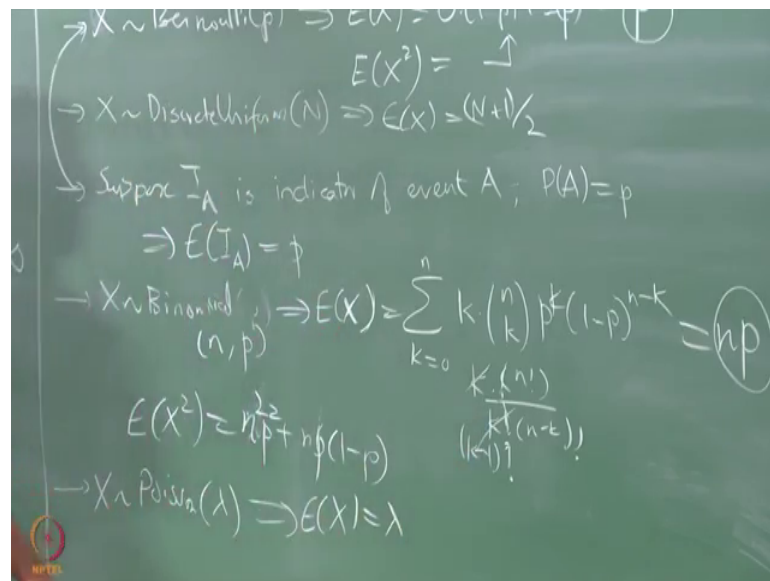 → X ~ Bernoulli(p) ⇒ E(X) = p
E(X²) =
→ X ~ DiscreteUniform(N) ⇒ E(X) = (N+1)/2
→ Suppose I_A is indicator of event A; P(A) = p
⇒ E(I_A) = p
→ X ~ Binomial (n, p) ⇒ E(X) = ∑_{k=0}^{n} k · (n choose k) p^k (1-p)^{n-k} = np
k · (n!)
k! (n-k)!
(k-1)!
E(X²) = n²p² + np(1-p)
→ X ~ Poisson(λ) ⇒ E(X) = λ
NPTEL